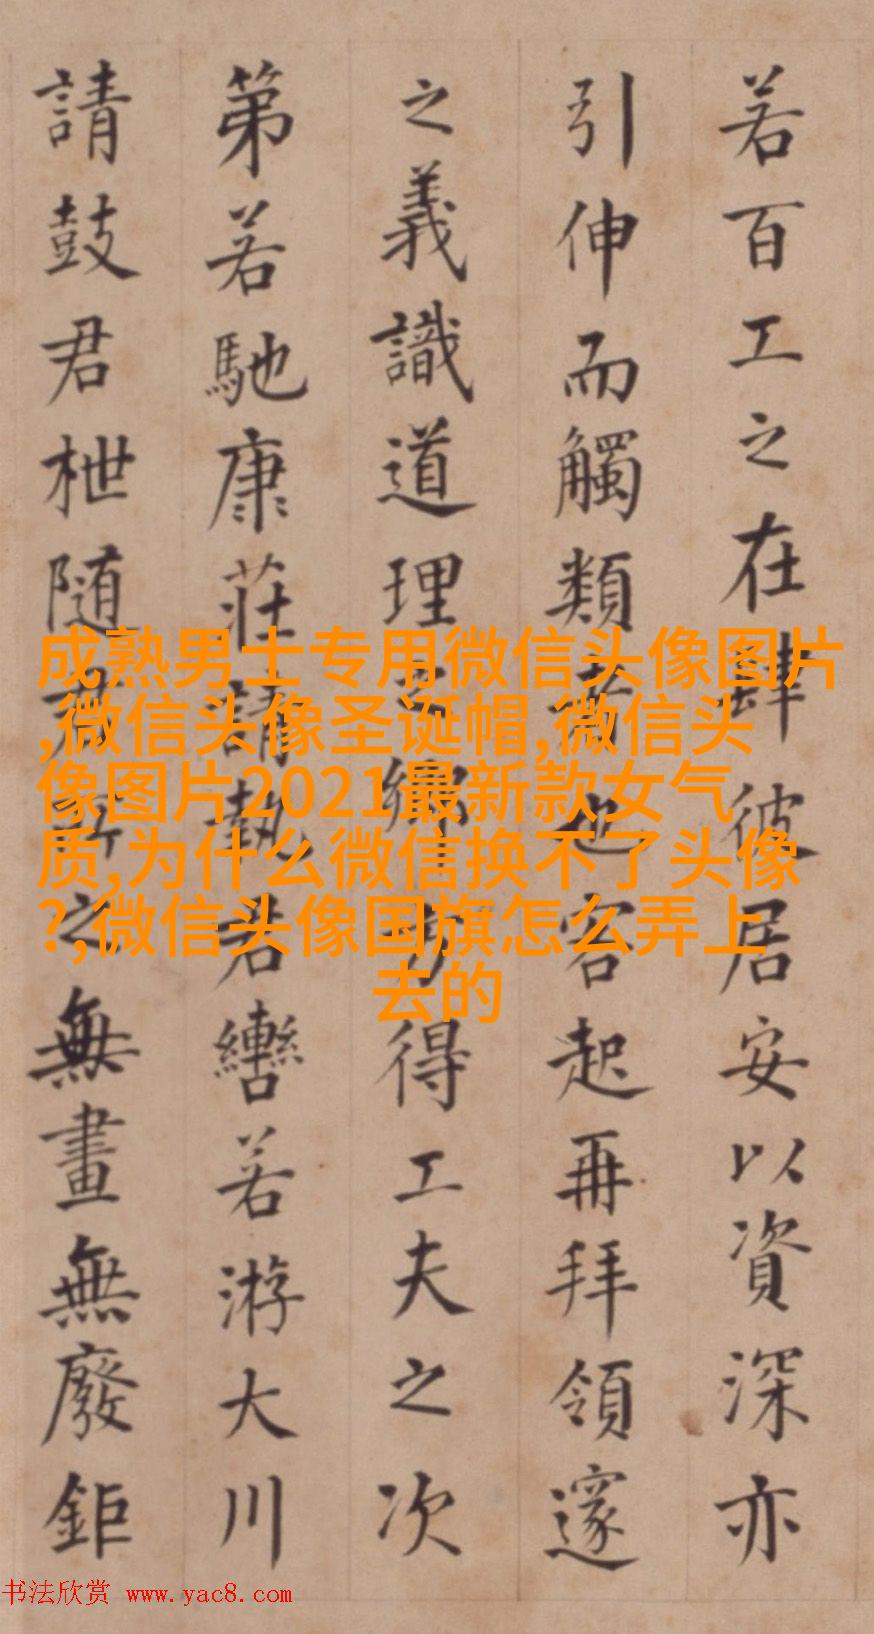 若百工之在肆彼居安以資深亦
引伸而觸類者也客起再拜領邃
之義識道理之鄉方得工夫之次
第若馳康莊請執君轡若游大川
請鼓君枻随之無畫無廢鉅
成熟男士专用微信头像图片
,微信头像圣诞帽,微信头
像图片2021最新款女气
质,为什么微信换不了头像
?,微信头像国旗怎么弄上
去的
书法欣赏 www.yac8.com